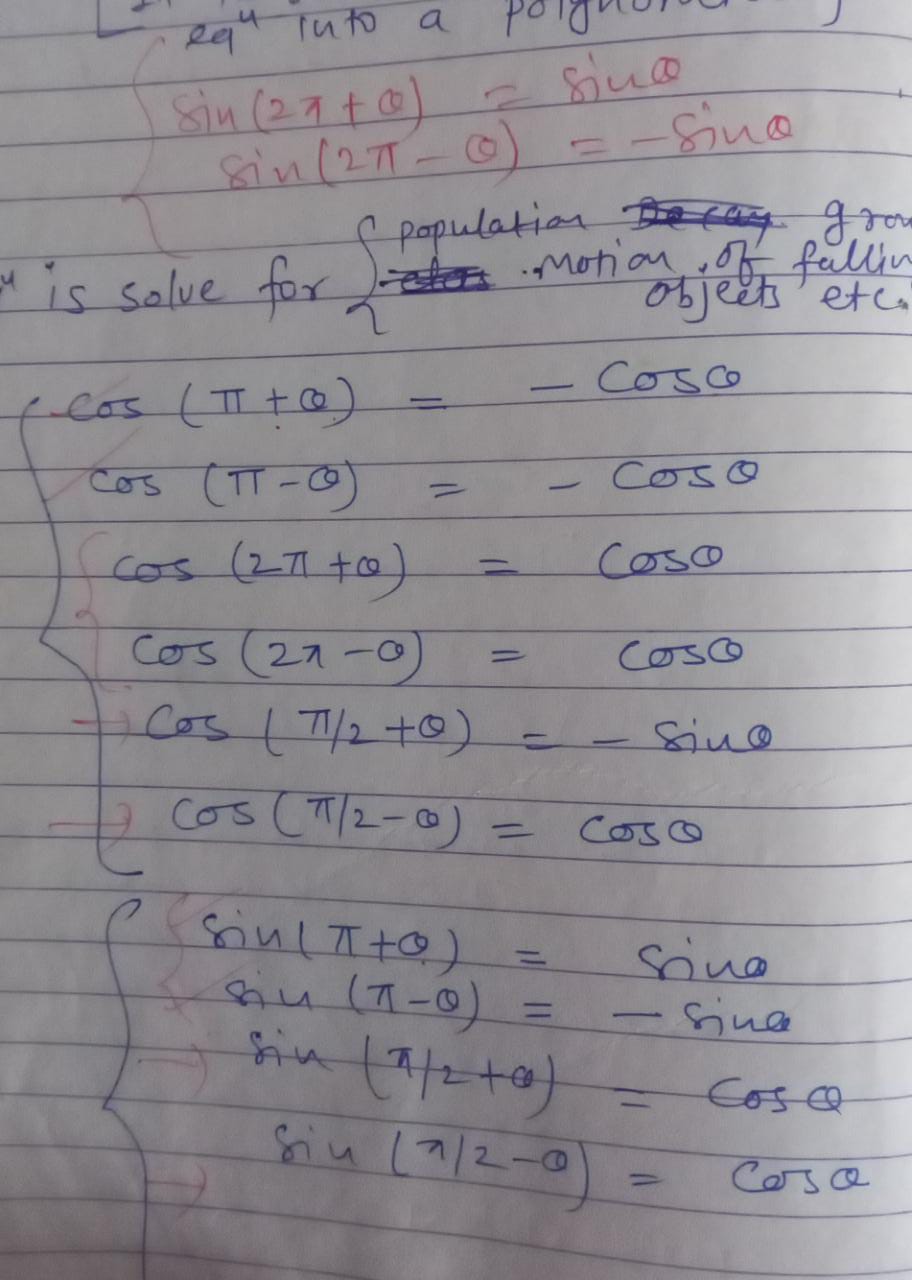 eqⁿ into a
sin(2π+θ) = sinθ
sin(2π-θ) = -sinθ
population
is solve for motion of
objects etc.
cos (π+θ) = - cosθ
cos (π-θ) = - cosθ
cos (2π+θ) = cosθ
cos (2π-θ) = cosθ
→ cos (π/2+θ) = - sinθ
→ cos (π/2-θ) = cosθ
sin(π+θ) = sinθ
sin (π-θ) = - sinθ
→ sin (π/2+θ) = cosθ
→ sin (π/2-θ) = cosθ